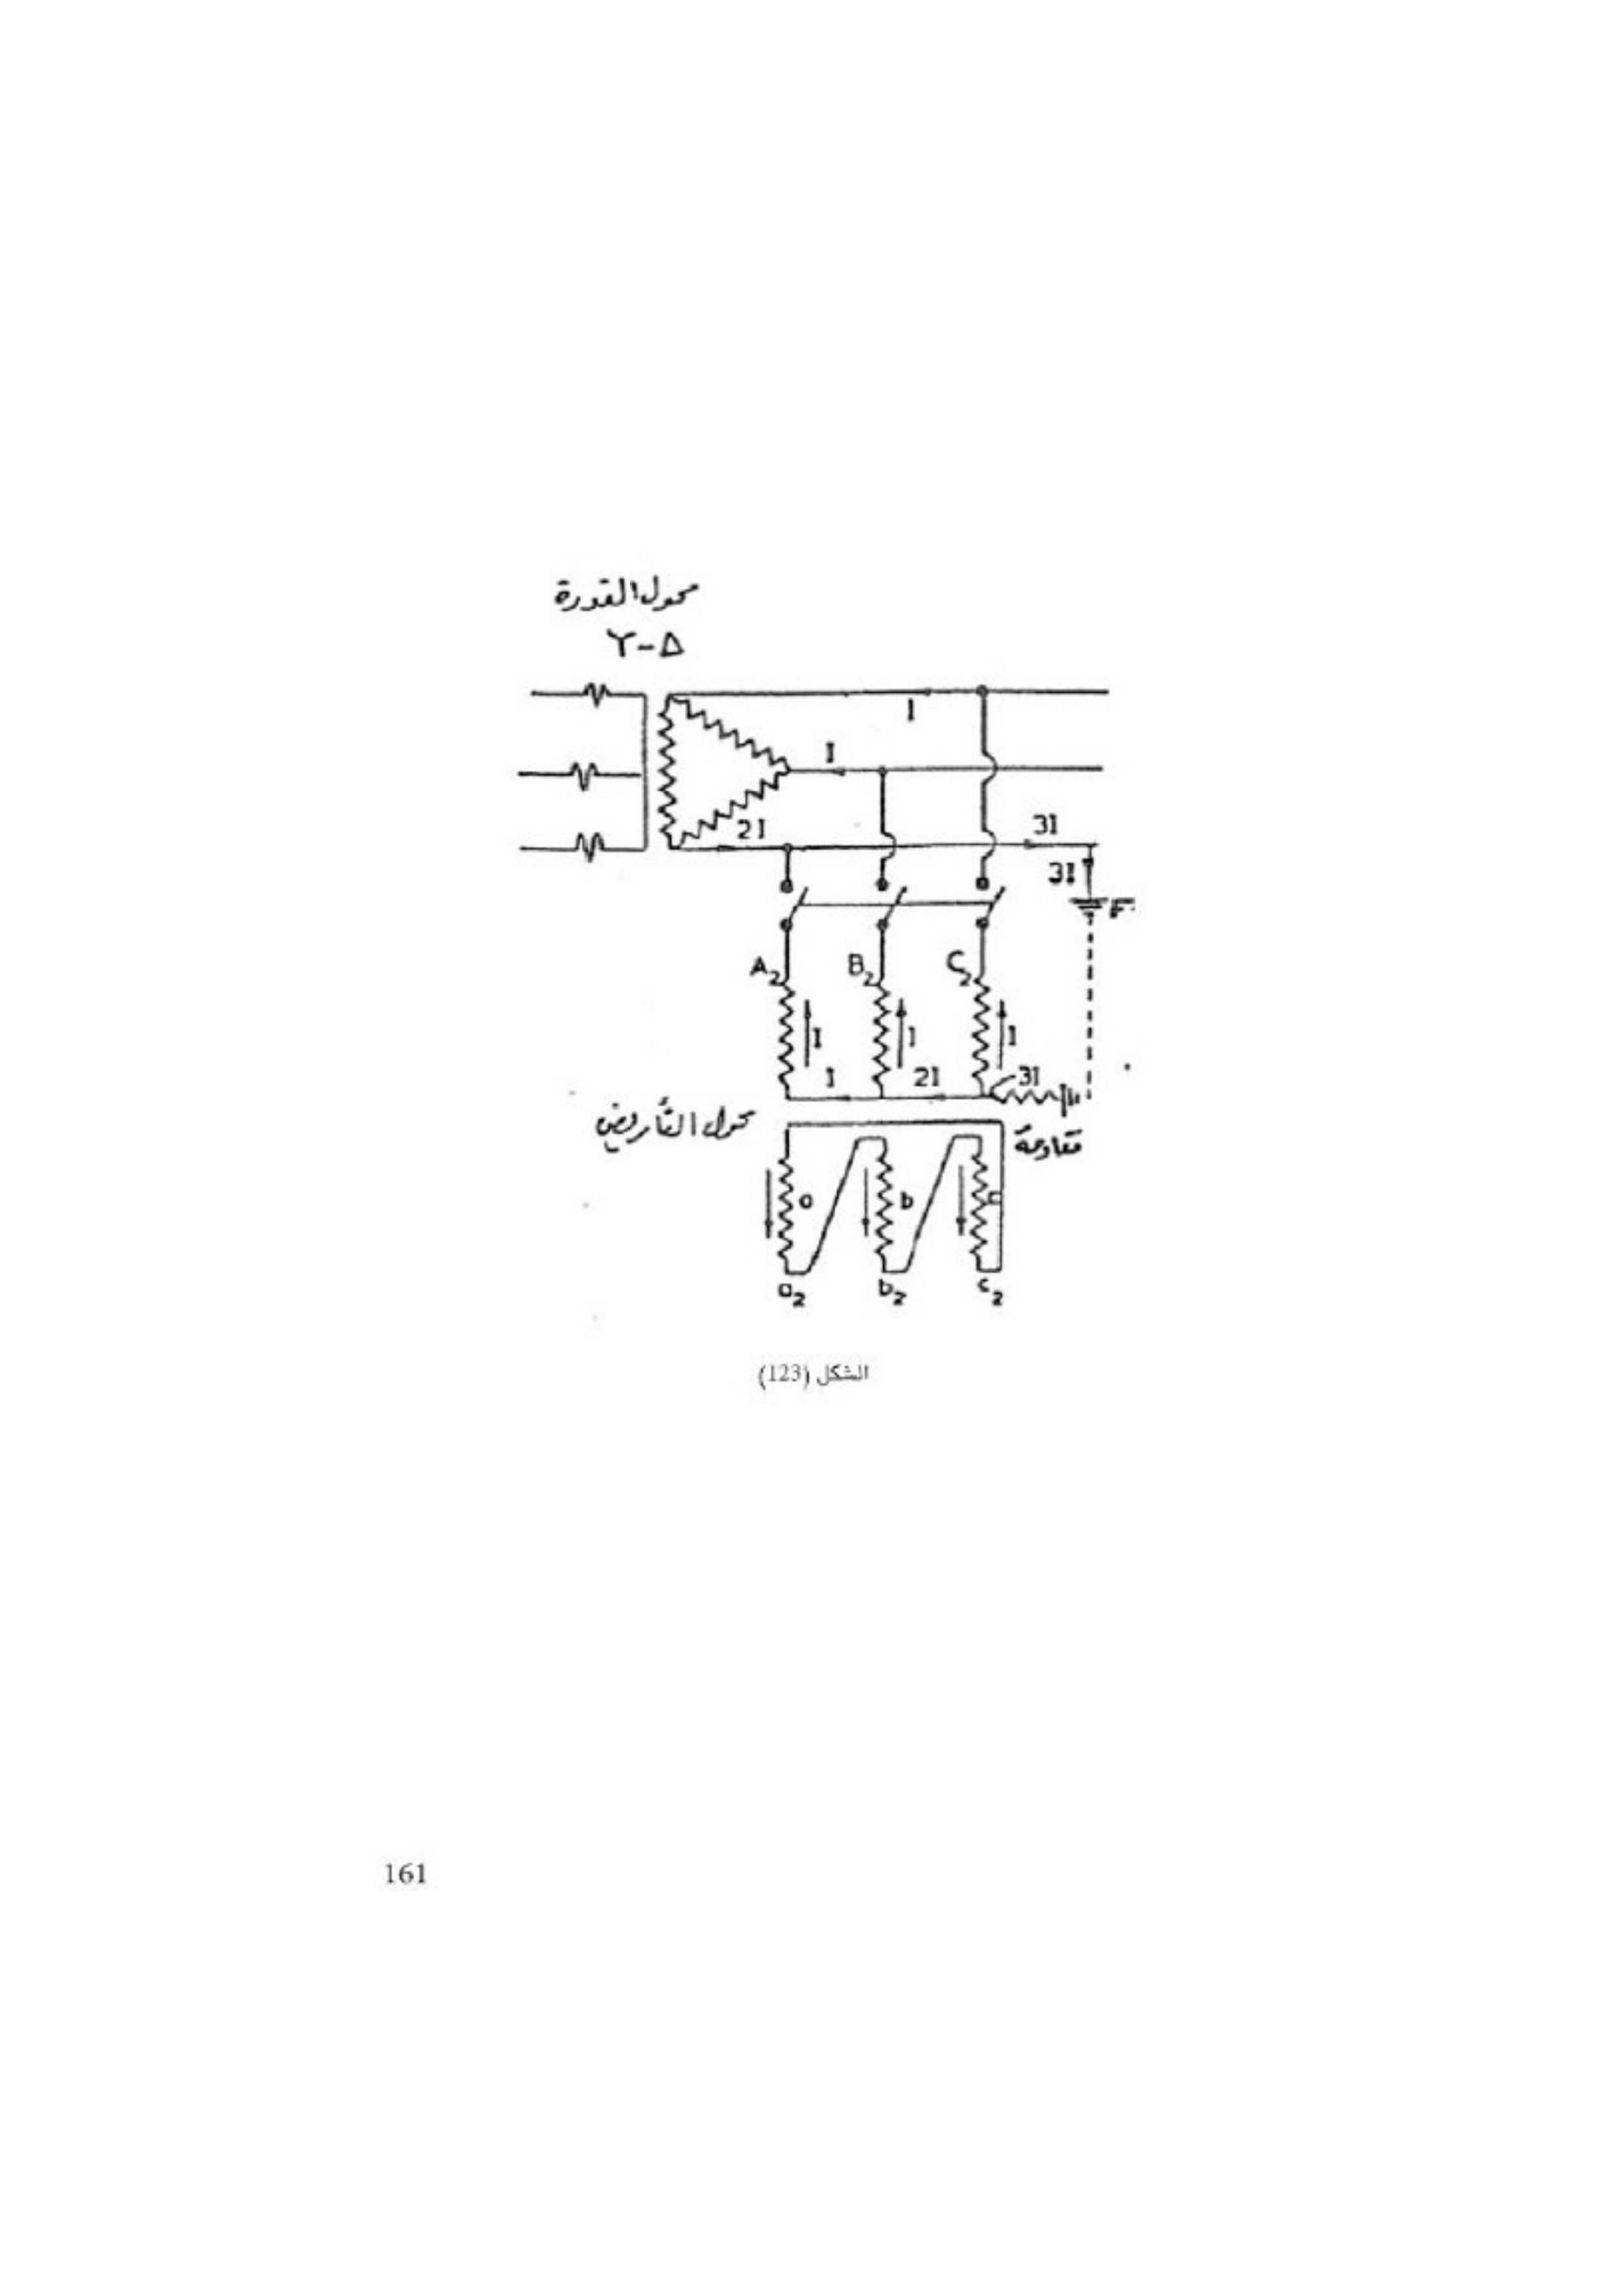 محول القدرة
Y-Δ
I
I
2I
3I
3I
F
A2
B2
C2
I
I
I
I
2I
3I
محول التأريض
مقاومة
a
b
c
a2
b2
c2
الشكل (123)
161